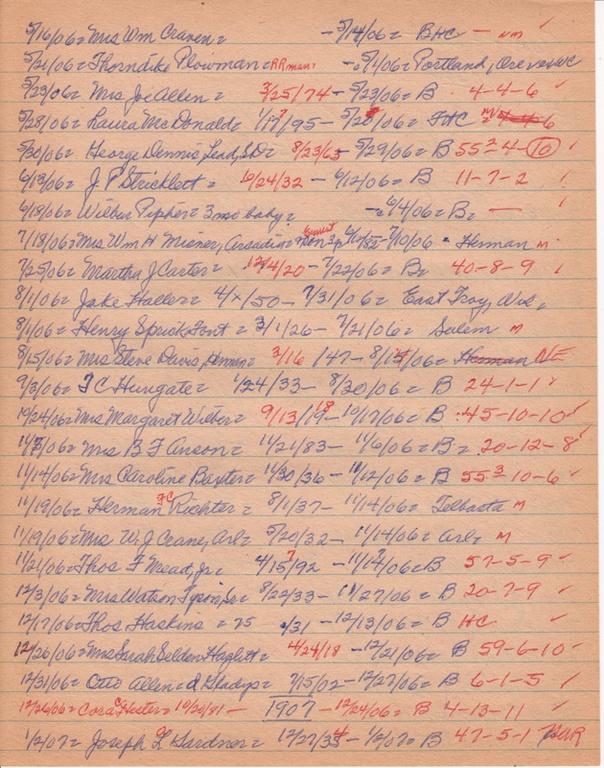 5/16/06 = Mrs Wm Craven = - 5/14/06 = BHC - nm ✓
5/21/06 = Thorndike Plowman = RR man = - = 5/1/06 = Portland, Ore
5/23/06 = Mrs Joe Allen = 3/25/74 - 5/23/06 = B 4-4-6 ✓
5/28/06 = Laura McDonald = /95 - /06 = 
5/30/06 = George Dennis, Lead, S.D. = 8/23/63 - 5/29/06 = B 55 2 4-10 ✓
6/13/06 = J P Stricklett = 6/24/32 - 6/12/06 = B 11-7-2 ✓
6/18/06 = Wilber Pipher = 3 mo baby = - = 6/4/06 = B = - ✓
7/18/06 = Mrs Wm H Misner, Arcadia = - 7/10/06 = Herman M
7/25/06 = Martha J Carter = 12/4/20 - 7/22/06 = B = 40-8-9 ✓
8/1/06 = Jake Haller = 4/x/50 - 7/31/06 = East Troy, Wis =
8/1/06 = Henry Sprick Font = 3/1/26 - 7/21/06 = Salem M
8/15/06 = Mrs Steve Davis, Herman = 3/16 /47 - /06 = Herman NE
9/3/06 = T C Hungate = 1/24/33 - 8/30/06 = B 24-1-1 ✓
10/24/06 = Mrs Margaret Wilber = 9/13/19 18 - 10/17/06 = B 45-10-10 ✓
11/ /06 = Mrs B F Anson = 11/21/83 - 11/6/06 = B = 20-12-8 ✓
11/14/06 = Mrs Caroline Baxter = 11/30/36 - 11/12/06 = B 55 3 10-6 ✓
11/19/06 = Herman FC Richter = 8/1/37 - 11/14/06 = Telbasta M
11/19/06 = Mrs W. J Crane, Arl = 5/20/32 - 11/14/06 = Arl = M
11/21/06 = Thos F Mead, Jr = 4/15/92 7 - 11/14/06 = B 57-5-9 ✓
12/3/06 = Mrs Watson Tyson, Sr = 8/22/33 - 11/27/06 = B 20-7-9 ✓
12/17/06 = Thos Haskins = 75 /31 - 12/13/06 = B HC ✓
12/26/06 = Mrs Sarah Selden Haslett = 4/24/18 - 12/21/06 = B 59-6-10 ✓
12/31/06 = Otto Allen = d Gladys = 7/15/02 - 12/27/06 = B 6-1-5 ✓
12/26/06 = Cora C Hester = 10/20/81 - 1907 - 12/24/06 = B 4-13-11 ✓
1/2/07 = Joseph L Gardner = 12/27/33 4 - 1/2/07 = B 47-5-1